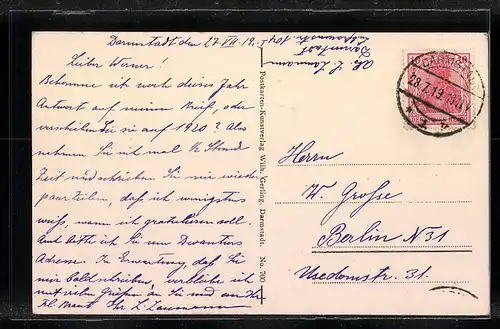 Darmstadt den 27. VII. 19.
Abs. L. Laumann
Darmstadt
104
Lieber Werner!
Bekomme ich noch dieses Jahr
Antwort auf meinen Brief, oder
verschieben Sie es auf 1920? Also
nehmen Sie ist mal ½ Stunde
Zeit und schreiben Sie mir wieder
paar Zeilen, daß ich wenigstens
weiß, wann ich gratulieren soll.
Auch bitte ich Sie um
Adresse. In Erwartung, daß Sie
mir bald schreiben, verbleibe ich
mit vielen Grüßen an Sie und an Ihr
Frl. Braut Ihr L. Laumann
Postkarten-Kunstverlag Wilh. Gerling, Darmstadt. No. 700
DARMSTADT
28.7.19.
Herrn
W. Grosse
Berlin N 31
Usedomstr. 31.